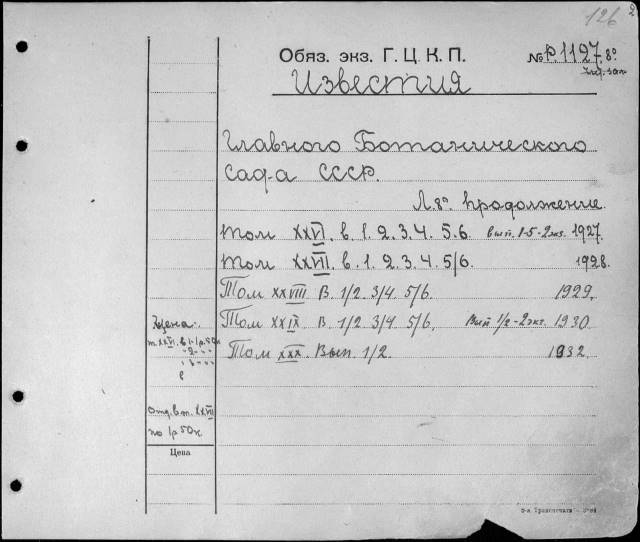 126 2
Обяз. экз. Г. Ц. К. П. № Р.1127. 8°
Известия
Главного Ботанического
сад-а СССР.
Л. 8° продолжение
том XXVI. в. 1. 2. 3. 4. 5. 6. вып. 1-5-2экз. 1927.
том XXVII. в. 1. 2. 3. 4. 5/6. 1928.
Том XXVIII В. 1/2. 3/4. 5/6. 1929.
Том XXIX В. 1/2 3/4 5/6. Вып 1/2-2экз. 1930.
Том XXX. Вып. 1/2. 1932.
Цена:
т. XXVI. в 1-1р.50к
отд. вып. XXVII
по 1р 50к.
Цена